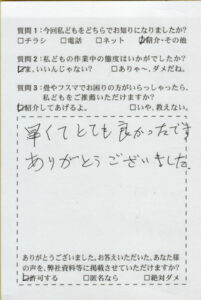 質問1:今回私どもをどちらでお知りになりましたか?
□チラシ □電話 □ネット ☑紹介・その他
質問2:私どもの作業中の態度はいかがでしたか?
☑ま、いいんじゃない? □ありゃ~、ダメだね。
質問3:畳やフスマでお困りの方がいらっしゃったら、
私どもをご推薦いただけますか?
☑紹介してあげるよ。 □いや、教えない。
早くてとても良かったです
ありがとうございました。
ありがとうございました。お答えいただいた、あなた様
の声を、弊社資料等に掲載させていただけますか?
☑許可する □匿名なら □絶対ダメ